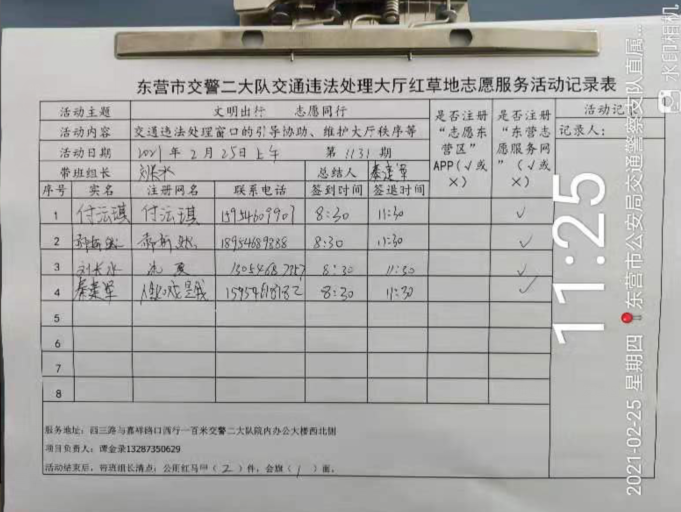 东营市交警二大队交通违法处理大厅红草地志愿服务活动记录表
活动主题 文明出行 志愿同行 是否注册“志愿东营区”APP(√或×) 是否注册“东营志愿服务网”(√或×) 活动记
活动内容 交通违法处理窗口的引导协助、维护大厅秩序等 记录人:
活动日期 2021年2月25日上午 第1131期
带班组长 刘长水 总结人 秦建军
序号 实名 注册网名 联系电话 签到时间 签退时间
1 付云琪 付云琪 15954609907 8:30 11:30 √
2 18954689338 8:30 11:30 √
3 刘长水 8:30 11:30 √
4 秦建军 8:30 11:30 √
5
6
7
8
服务地址:西三路与嘉祥路口西行一百米交警二大队院内办公大楼西北侧
项目负责人:谭金录13287350629
活动结束后,带班组长清点:公用红马甲(2)件,会旗(1)面。
11:25
2021-02-25 星期四 东营市公安局交通警察支队直属...
水印相机